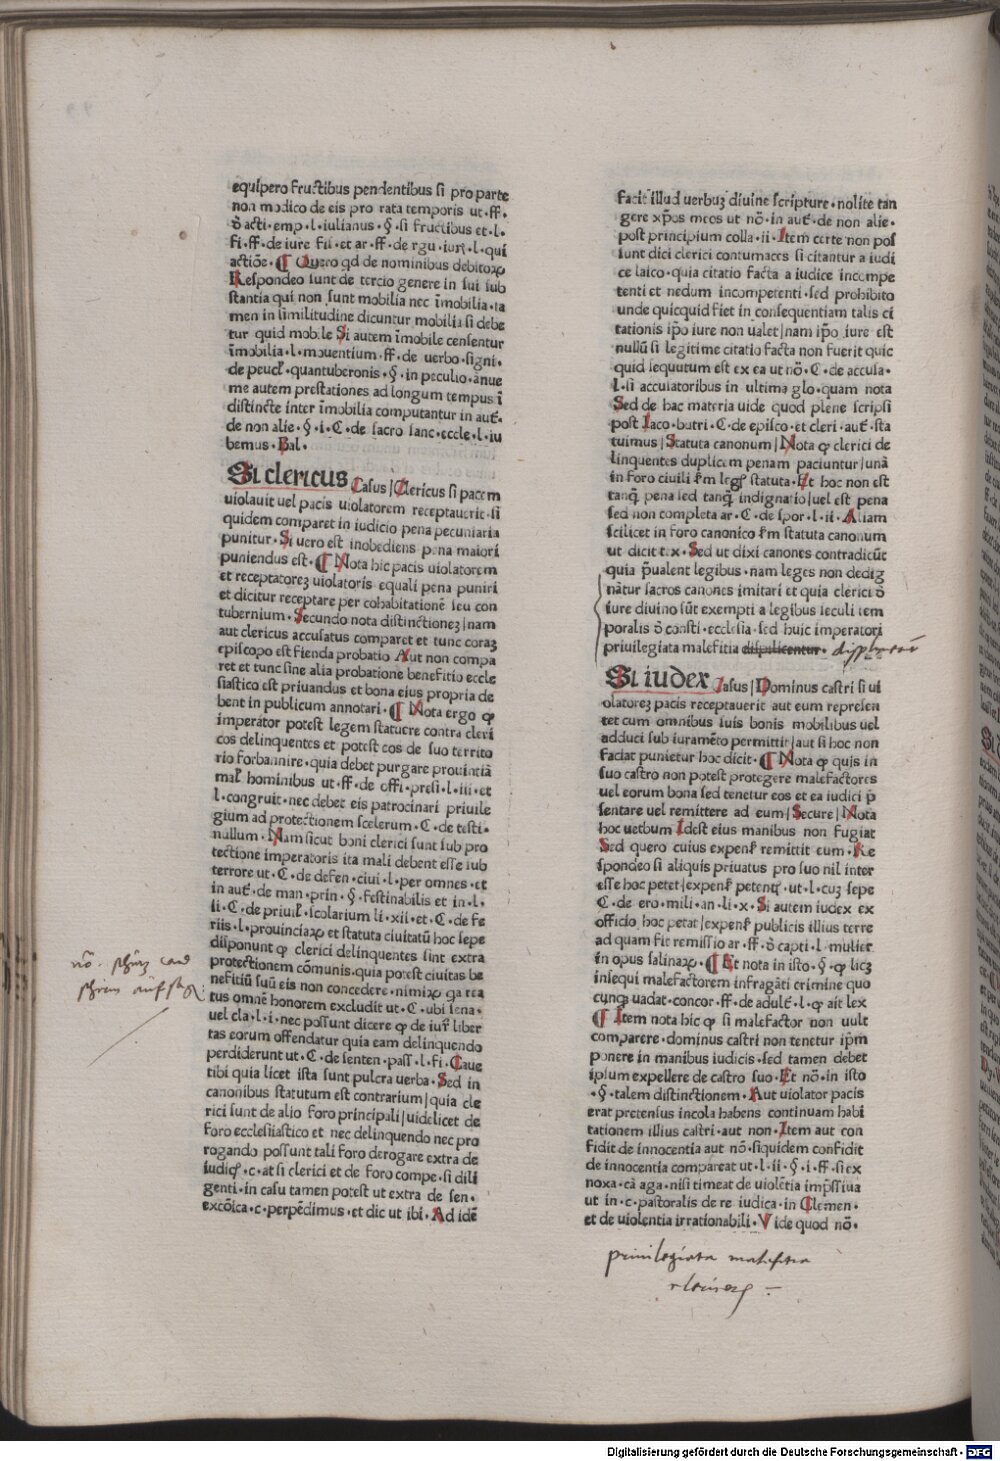 equipero fructibus pendentibus si pro parte
non modico de eis pro rata temporis ut·ff·
ō acti·emp·l·iulianus·§·si fructibus et·l·
fi·ff·de iure fis·et ar·ff·de rgu·iurꝭ·l·qui
actiōe·¶ Quero qd de nominibus debitoꝝ
Respondeo sunt de tercio genere in sui sub
stantia qui non sunt mobilia nec īmobilia·ta
men in similitudine dicuntur mobilia si debe
tur quid mobile Si autem īmobile censentur
īmobilia·l·mouentium·ff·de uerbo·signi·
de peucl̄·quantuberonis·§·in peculio·ānue
me autem prestationes ad longum tempus ī
distincte inter īmobilia computantur in autē·
de non alie·§·i·C·de sacro sanc·eccle·l·iu
bemus·Bal·
Si clericus Casus/Clericus si pacem
uiolauit uel pacis uiolatorem receptauerit·si
quidem comparet in iudicio pena pecuniaria
punitur·Si uero est inobediens pena maiori
puniendus est·¶ Nota hic pacis uiolatorem
et receptatoreꝫ uiolatoris equali pena puniri
et dicitur receptare per cohabitationē seu con
tubernium·Secundo nota distinctioneꝫ/nam
aut clericus accusatus comparet et tunc coraꝫ
episcopo est fienda probatio Aut non compa
ret et tunc sine alia probatione benefitio eccle
siastico est priuandus et bona eius propria de
bent in publicum annotari·¶ Nota ergo ꝙ
imperator potest legem statuere contra cleri
cos delinquentes et potest eos de suo territo
rio forbannire·quia debet purgare prouintiā
mal̄ hominibus ut·ff·de offi·presi·l·iii·et
l·congruit·nec debet eis patrocinari priuile
gium ad protectionem scelerum·C·de testi·
nullum·Nam sicut boni clerici sunt sub pro
tectione imperatoris ita mali debent esse sub
terrore ut·C·de defen·ciui·l·per omnes·et
in autē·de man·prin·§·festinabilis et in·l·
ii·C·de priuil̄·scolarium li·xii·et·C·de fe
riis·l·prouinciaꝝ et statuta ciuitatū hoc sepe
disponunt ꝙ clerici delinquentes sint extra
protectionem cōmunis·quia potest ciuitas be
nefitiū suū eis non concedere·nimiꝝ qa rea
tus omnē honorem excludit ut·C·ubi sena·
uel cla·l·i·nec possunt dicere ꝙ de iurꝭ liber
tas eorum offendatur quia eam delinquendo
perdiderunt ut·C·de senten·pass·l·fi·Caue
tibi quia licet ista sunt pulcra uerba·Sed in
canonibus statutum est contrarium/quia cle
rici sunt de alio foro principali/uidelicet de
foro ecclesiiastico et nec delinquendo nec pro
rogando possunt tali foro derogare extra de
iudicꝭ·c·at si clerici et de foro compe·si dili
genti·in casu tamen potest ut extra de sen·
excōica·c·perpēdimus·et dic ut ibi·Ad idē
facit illud uerbuꝫ diuine scripture·nolite tan
gere xp̄os meos ut nō·in autē·de non alie·
post principium colla·ii·Item certe non pos
sunt dici clerici contumaces si citantur a iudi
ce laico·quia citatio facta a iudice incompe
tenti et nedum incompetenti·sed prohibito
unde quicquid fiet in consequentiam talis ci
tationis ip̄o iure non ualet/nam ip̄o iure est
nullū si legitime citatio facta non fuerit quic
quid sequutum est ex ea ut nō·C·de accusa·
l·si accusatoribus in ultima glo·quam nota
Sed de hac materia uide quod plene scripsi
post Iaco·butri·C·de episco·et cleri·autē·sta
tuimus/Statuta canonum/Nota ꝙ clerici de
linquentes duplicem penam paciuntur/unā
in foro ciuili s̄m legꝭ statuta·Et hoc non est
tanq̄ pena sed tanq̄ indignatio/uel est pena
sed non completa ar·C·de spor·l·ii·Aliam
scilicet in foro canonico s̄m statuta canonum
ut dicit tex·Sed ut dixi canones contradicūt
quia p̄ualent legibus·nam leges non dedig
nātur sacros canones imitari et quia clerici ō
iure diuino sūt exempti a legibus seculi tem
poralis ō consti·ecclesia·sed huic imperatori
priuilegiata malefitia displicentur·
Si iudex Casus/Dominus castri si ui
olatoreꝫ pacis receptauerit aut eum represen
tet cum omnibus suis bonis mobilibus uel
adduci sub iuramēto permittit/aut si hoc non
faciat punietur hoc dicit·¶ Nota ꝙ quis in
suo castro non potest protegere malefactores
uel eorum bona sed tenetur eos et ea iudici p̄
sentare uel remittere ad eum/Secure/Nota
hoc uerbum Idest eius manibus non fugiat
Sed quero cuius expensꝭ remittit eum·Re
spondeo si aliquis priuatus pro suo nil inter
esse hoc petet/expensꝭ petentꝭ·ut·l·cuꝫ sepe
C·de ero·mili·an·li·x·Si autem iudex ex
officio hoc petat/expensꝭ publicis illius terre
ad quam fit remissio ar·ff·ō capti·l·mulier
in opus salinaꝝ·¶ Et nota in isto·§·ꝙ licꝫ
insequi malefactorem infragāti crimine quo
cunqꝫ uadat·concor·ff·de adulꝭ·l·ꝙ ait lex
¶ Item nota hic ꝙ si malefactor non uult
comparere·dominus castri non tenetur ipm
ponere in manibus iudicis·sed tamen debet
ipsum expellere de castro suo·Et nō·in isto
·§·talem distinctionem·Aut uiolator pacis
erat pretensus incola habens continuam habi
tationem illius castri·aut non·Item aut con
fidit de innocentia aut nō·siquidem confidit
de innocentia compareat ut·l·ii·§·i·ff·si ex
noxa·cā aga·nisi timeat de uiolētia imp̄ssiua
ut in·c·pastoralis de re iudica·in Clemen·
et de uiolentia irrationabili·Vide quod nō·
priuilegiata malefitia
Digitalisierung gefördert durch die Deutsche Forschungsgemeinschaft - DFG